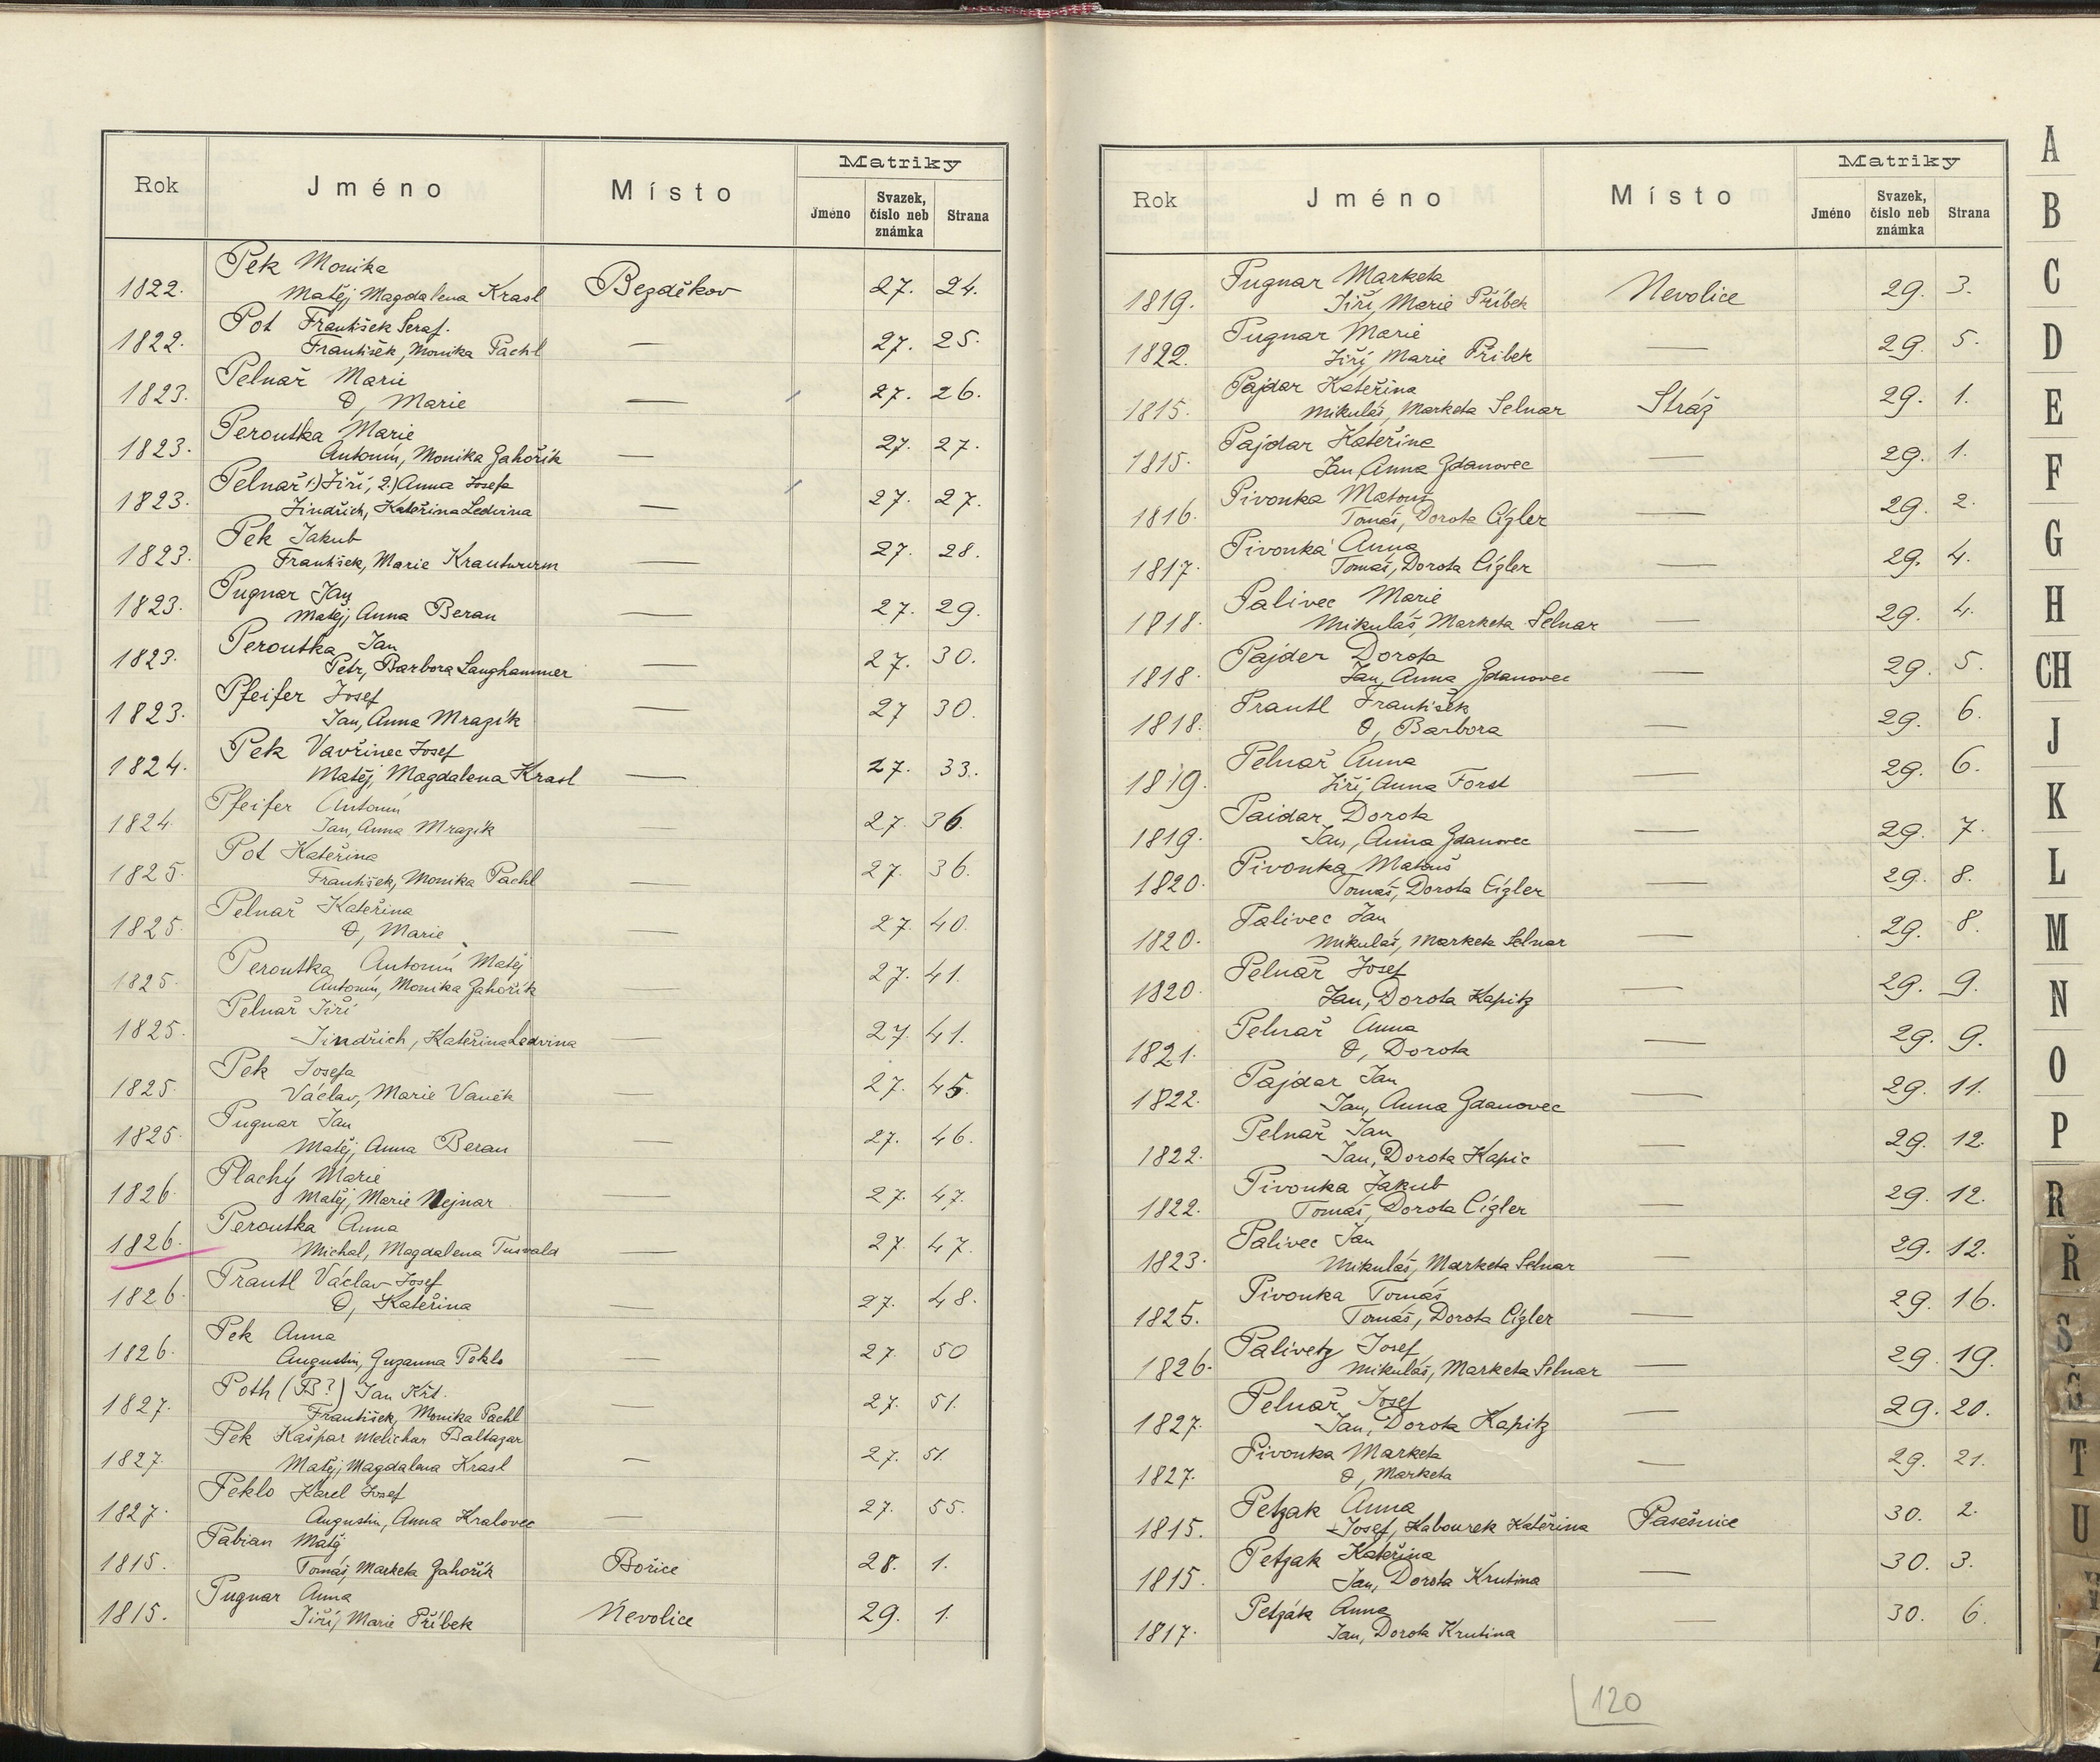 Rok Jméno Místo Matriky
Jméno Svazek, číslo neb známka Strana
Pek Monika
1822. Matěj, Magdalena Krasl Bezděkov 27. 24.
Pot František Seraf.
1822. František, Monika Pachl — 27. 25.
Pelnař Marie
1823. O, Marie — 27. 26.
Peroutka Marie
1823. Antonín, Monika Zahořík — 27. 27.
Pelnař 1.) Jiří, 2.) Anna Josefa
1823. Jindřich, Kateřina Ledvina — 27. 27.
Pek Jakub
1823. František, Marie Krautwurm — 27. 28.
Pugnar Jan
1823. Matěj, Anna Beran — 27. 29.
Peroutka Jan
1823. Petr, Barbora Langhammer — 27. 30.
Pfeifer Josef
1823. Jan, Anna Mrazík — 27 30.
Pek Vavřinec Josef
1824. Matěj, Magdalena Krasl — 27. 33.
Pfeifer Antonín
1824. Jan, Anna Mrazík — 27. 36.
Pot Kateřina
1825. František, Monika Pachl — 27. 36.
Pelnař Kateřina
1825. O, Marie — 27. 40.
Peroutka Antonín Matěj
1825. Antonín, Monika Zahořík — 27. 41.
Pelnař Jiří
1825. Jindřich, Kateřina Ledvina — 27. 41.
Pek Josefa
1825. Václav, Marie Vaněk — 27. 45.
Pugnar Jan
1825. Matěj, Anna Beran — 27. 46.
Plachý Marie
1826. Matěj, Marie Nejnar — 27. 47.
Peroutka Anna
1826. Michal, Magdalena Tusvald — 27. 47.
Prantl Václav Josef
1826. O, Kateřina — 27. 48.
Pek Anna
1826. Augustin, Zuzanna Peklo — 27. 50
Poth (B?) Jan Křt.
1827. František, Monika Pachl — 27. 51.
Pek Kašpar Melichar Baltazar
1827. Matěj, Magdalena Krasl — 27. 51.
Peklo Karel Josef
1827. Augustin, Anna Kralovec — 27. 55.
Pabian Matěj
1815. Tomáš, Marketa Zahořík Bořice 28. 1.
Pugnar Anna
1815. Jiří, Marie Příbek Nevolice 29. 1.
Rok Jméno Místo Matriky
Jméno Svazek, číslo neb známka Strana
Pugnar Marketa
1819. Jiří, Marie Příbek Nevolice 29. 3.
Pugnar Marie
1822. Jiří, Marie Příbek — 29. 5.
Pajdar Kateřina
1815. Mikuláš, Marketa Selnar Stráž 29. 1.
Pajdar Kateřina
1815. Jan, Anna Zdanovec — 29. 1.
Pivonka Matouš
1816. Tomáš, Dorota Cígler — 29. 2.
Pivonka Anna
1817. Tomáš, Dorota Cígler — 29. 4.
Palivec Marie
1818. Mikuláš, Marketa Selnar — 29. 4.
Pajder Dorota
1818. Jan, Anna Zdanovec — 29. 5.
Prantl František
1818. O, Barbora — 29. 6.
Pelnař Anna
1819. Jiří, Anna Forst — 29. 6.
Paidar Dorota
1819. Jan, Anna Zdanovec — 29. 7.
Pivonka Matouš
1820. Tomáš, Dorota Cígler — 29. 8.
Palivec Jan
1820. Mikuláš, Marketa Selnar — 29. 8.
Pelnař Josef
1820. Jan, Dorota Kapitz — 29. 9.
Pelnař Anna
1821. O, Dorota — 29. 9.
Pajdar Jan
1822. Jan, Anna Zdanovec — 29. 11.
Pelnař Jan
1822. Jan, Dorota Kapic — 29. 12.
Pivonka Jakub
1822. Tomáš, Dorota Cígler — 29. 12.
Palivec Jan
1823. Mikuláš, Marketa Selnar — 29. 12.
Pivonka Tomáš
1825. Tomáš, Dorota Cígler — 29. 16.
Palivetz Josef
1826. Mikuláš, Marketa Selnar — 29. 19.
Pelnař Josef
1827. Jan, Dorota Kapitz — 29. 20.
Pivonka Marketa
1827. O, Marketa — 29. 21.
Petzak Anna
1815. Josef, Kabourek Kateřina Pasešnice 30. 2.
Petzak Kateřina
1815. Jan, Dorota Krutina — 30. 3.
Petzák Anna
1817. Jan, Dorota Krutina — 30. 6.
120
A
B
C
D
E
F
G
H
CH
J
K
L
M
N
O
P
R
Ř
S
Š
T
U